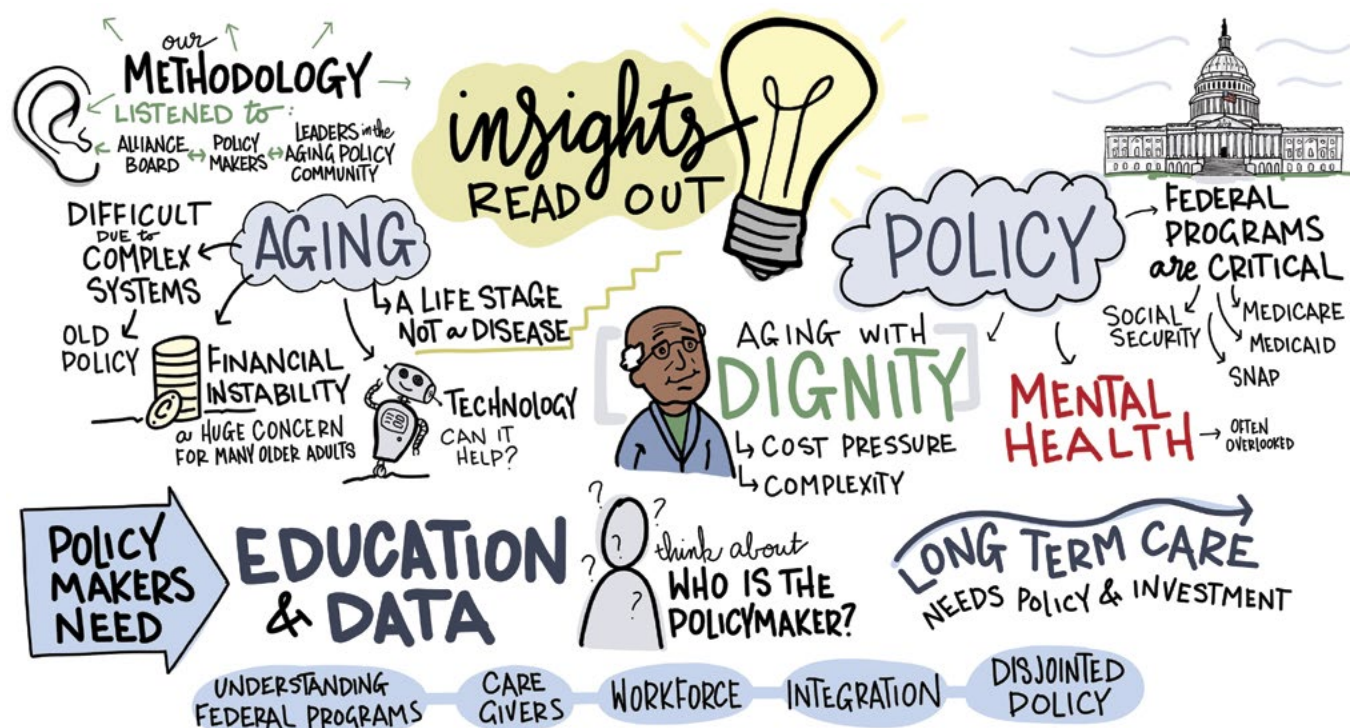 our
METHODOLOGY
LISTENED to:
ALLIANCE
BOARD
POLICY
MAKERS
LEADERS in the
AGING POLICY
COMMUNITY
insights
READ OUT
AGING
DIFFICULT
DUE to
COMPLEX
SYSTEMS
OLD
POLICY
FINANCIAL
INSTABILITY
a HUGE CONCERN
FOR MANY OLDER ADULTS
A LIFE STAGE
NOT a DISEASE
TECHNOLOGY
CAN IT
HELP?
POLICY
FEDERAL
PROGRAMS
are CRITICAL
SOCIAL
SECURITY
MEDICARE
MEDICAID
SNAP
AGING WITH
DIGNITY
COST PRESSURE
COMPLEXITY
MENTAL
HEALTH
OFTEN
OVERLOOKED
POLICY
MAKERS
NEED
EDUCATION
& DATA
? ? ? ? ? ?
think about
WHO IS THE
POLICYMAKER?
LONG TERM CARE
NEEDS POLICY & INVESTMENT
UNDERSTANDING
FEDERAL PROGRAMS
CARE
GIVERS
WORKFORCE
INTEGRATION
DISJOINTED
POLICY